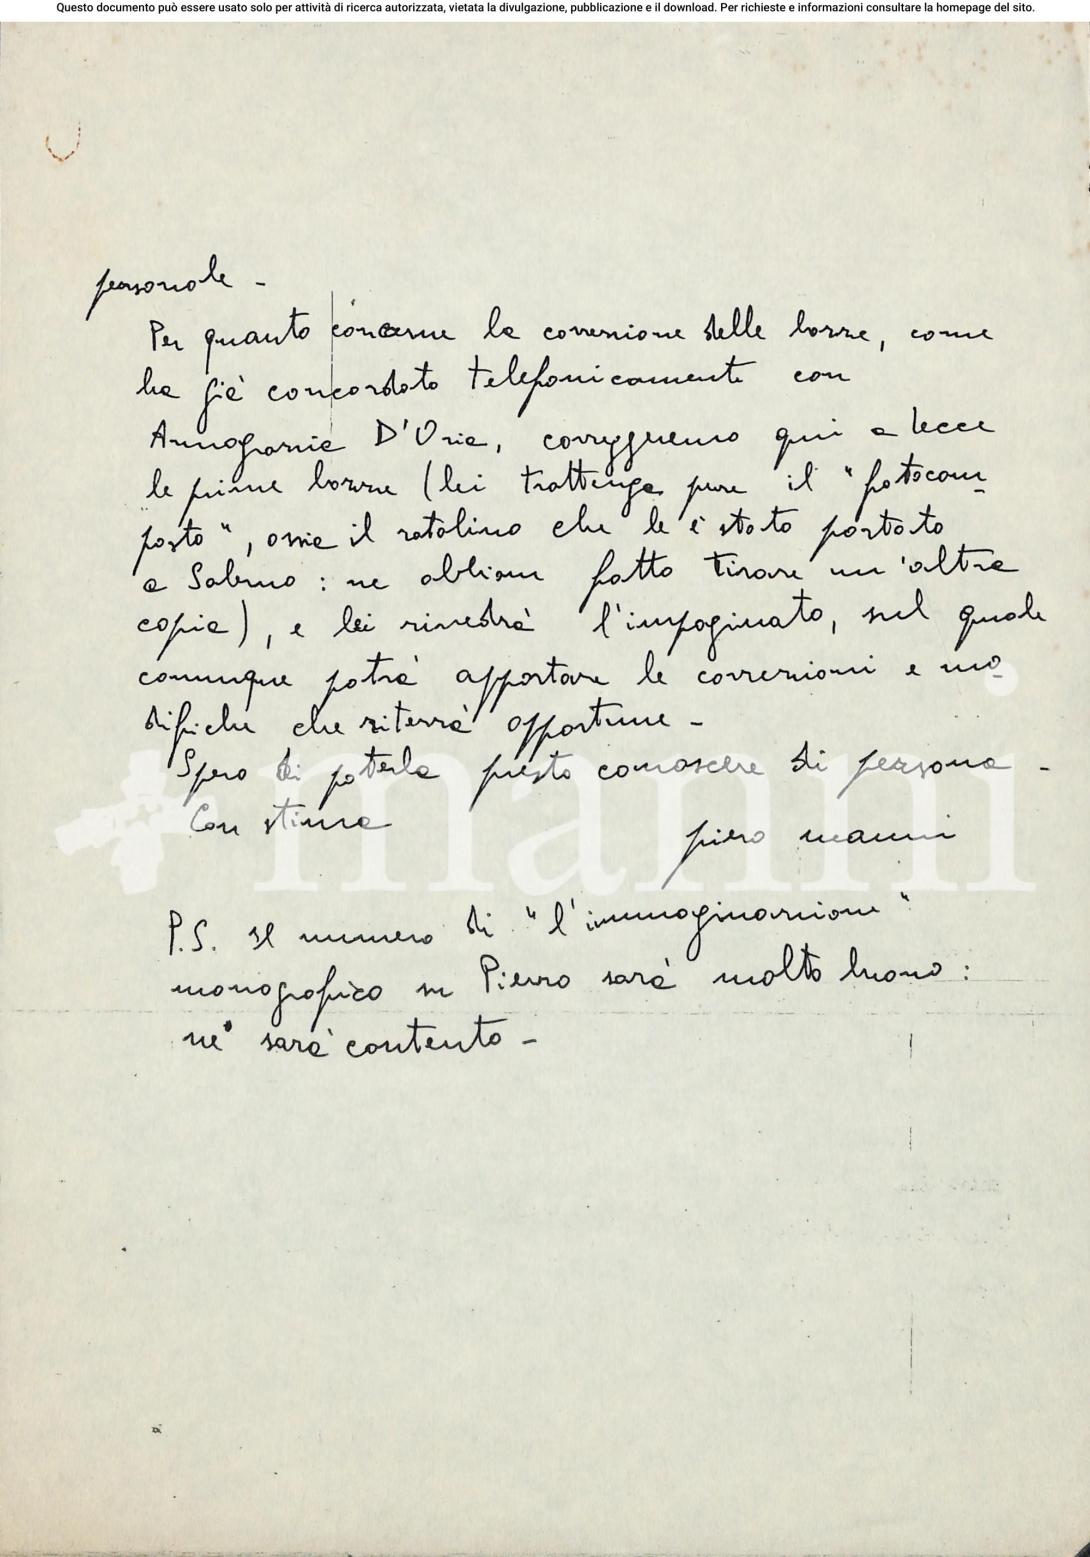 Questo documento può essere usato solo per attività di ricerca autorizzata, vietata la divulgazione, pubblicazione e il download. Per richieste e informazioni consultare la homepage del sito.
personale -
Per quanto concerne la correzione delle bozze, come
ha già concordato telefonicamente con
Annagrazia D'Oria, correggeremo qui a Lecce
le prime bozze (lei trattenga pure il "fotocom-
posto", ossia il rotolino che le è stato portato
a Salerno: ne abbiam fatto tirare un'altra
copia), e lei rivedrà l'impaginato, sul quale
comunque potrà apportare le correzioni e mo-
difiche che riterrà opportune -
Spero di poterla presto conoscere di persona -
Con stima
piero manni
manni
P.S. Il numero di "l'immaginazione"
monografico su Pierro sarà molto buono:
ne sarà contento -